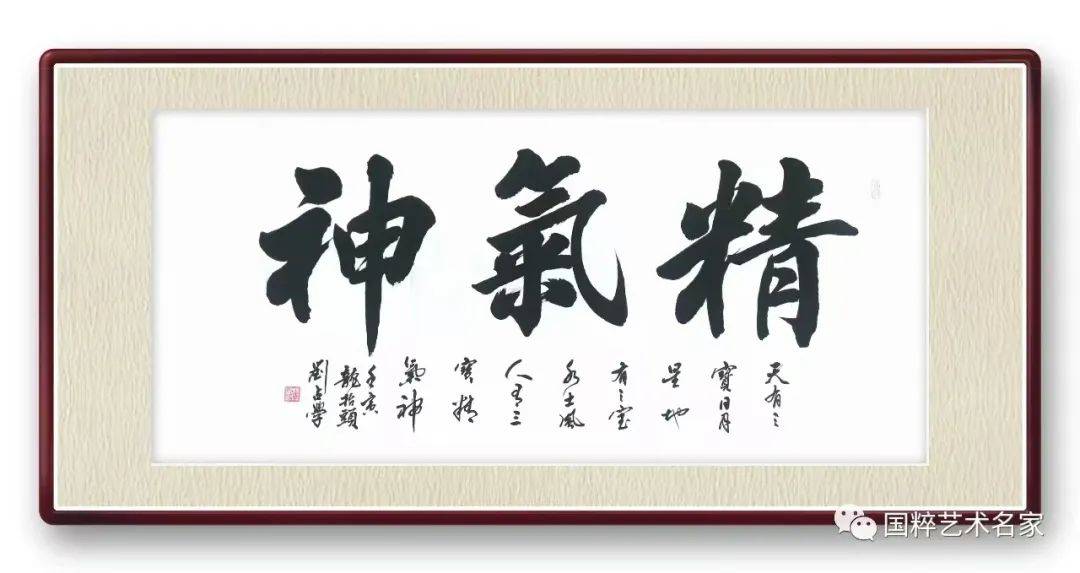 精氣神
天有三
寶日月
星地
有三宝
水土風
人有三
寶精
氣神
壬寅
龍抬頭
劉占學
国粹艺术名家